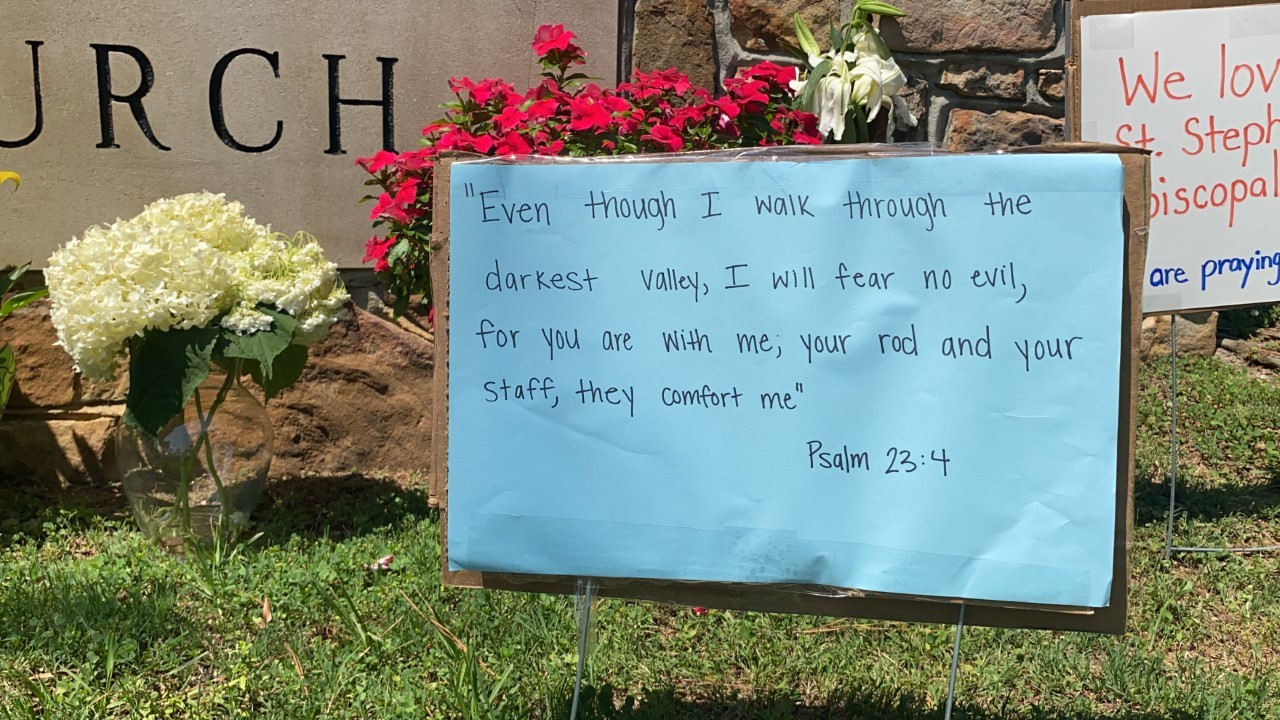 URCH
"Even though I walk through the
darkest valley, I will fear no evil,
for you are with me; your rod and your
staff, they comfort me"
Psalm 23:4
We lov
St. Steph
piscopal
are praying